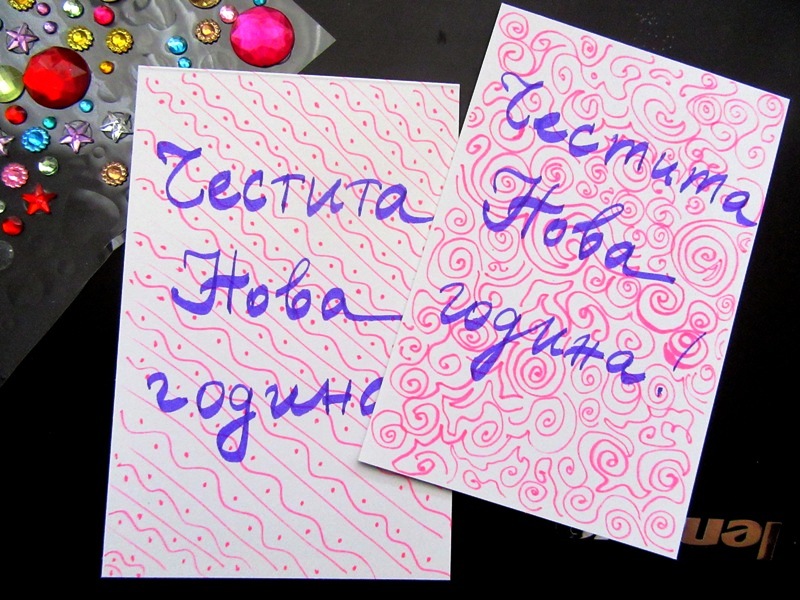 Честита
Нова
годин
Честита
Нова
година!